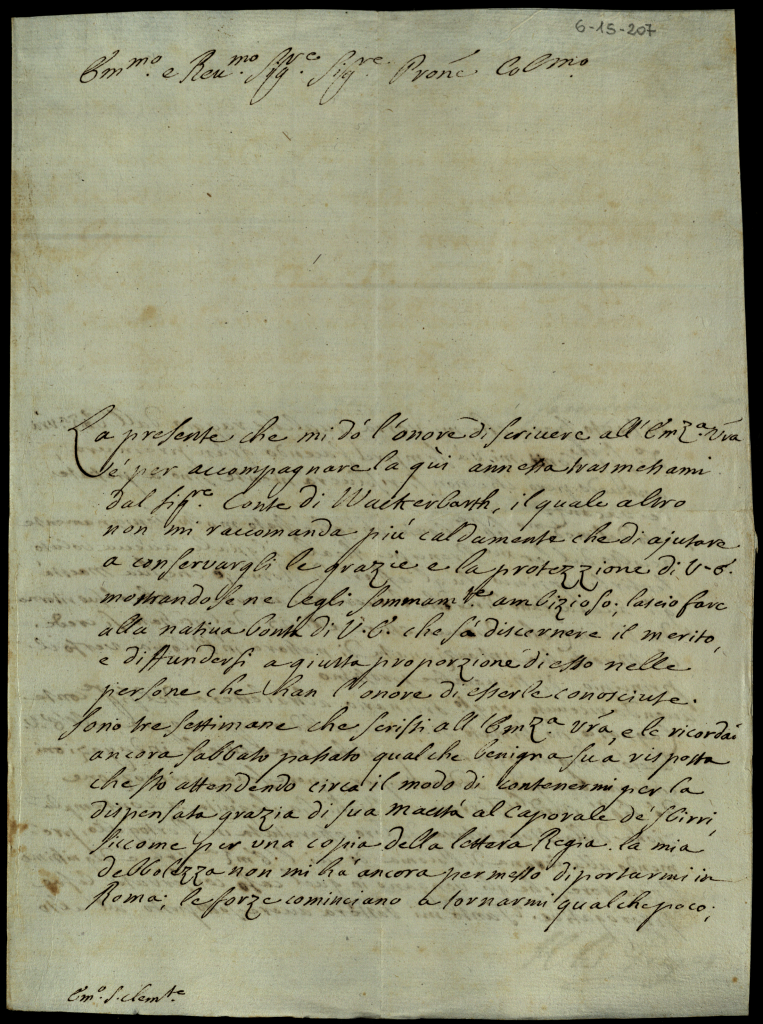 6-15-207
Emmo. e Reumo. Sigre. Sigre. Prone Colmo.
La presente che mi dó l'onore di scriuere all'Emza. Vra
é per accompagnare la qùi annessa trasmessami
dal Sigre. Conte di Wackerbarth, il quale altro
non mi raccomanda piú caldamente che di ajutare
a conservargli le grazie e la protezzione di V. E.
mostrandosene egli sommamte. ambizioso; lascio fare
alla nativa bontá di V. E. che sá discernere il merito,
e diffundersi a giusta proporzione di esso nelle
persone che han l'onore di esserle conosciute.
Sono tre settimane che scrissi all'Emza. Vra, e le ricordai
ancora sabbato passato qualche benigna sua risposta
che stó attendendo circa il modo di contenermi per la
dispensata grazia di sua maestá al Caporale dé sbirri,
siccome per una copia della lettera Regia. la mia
debbolezza non mi há ancora permesso di portarmi in
Roma; le forze cominciano a tornarmi qualche poco;
Emo. S. Clemte.